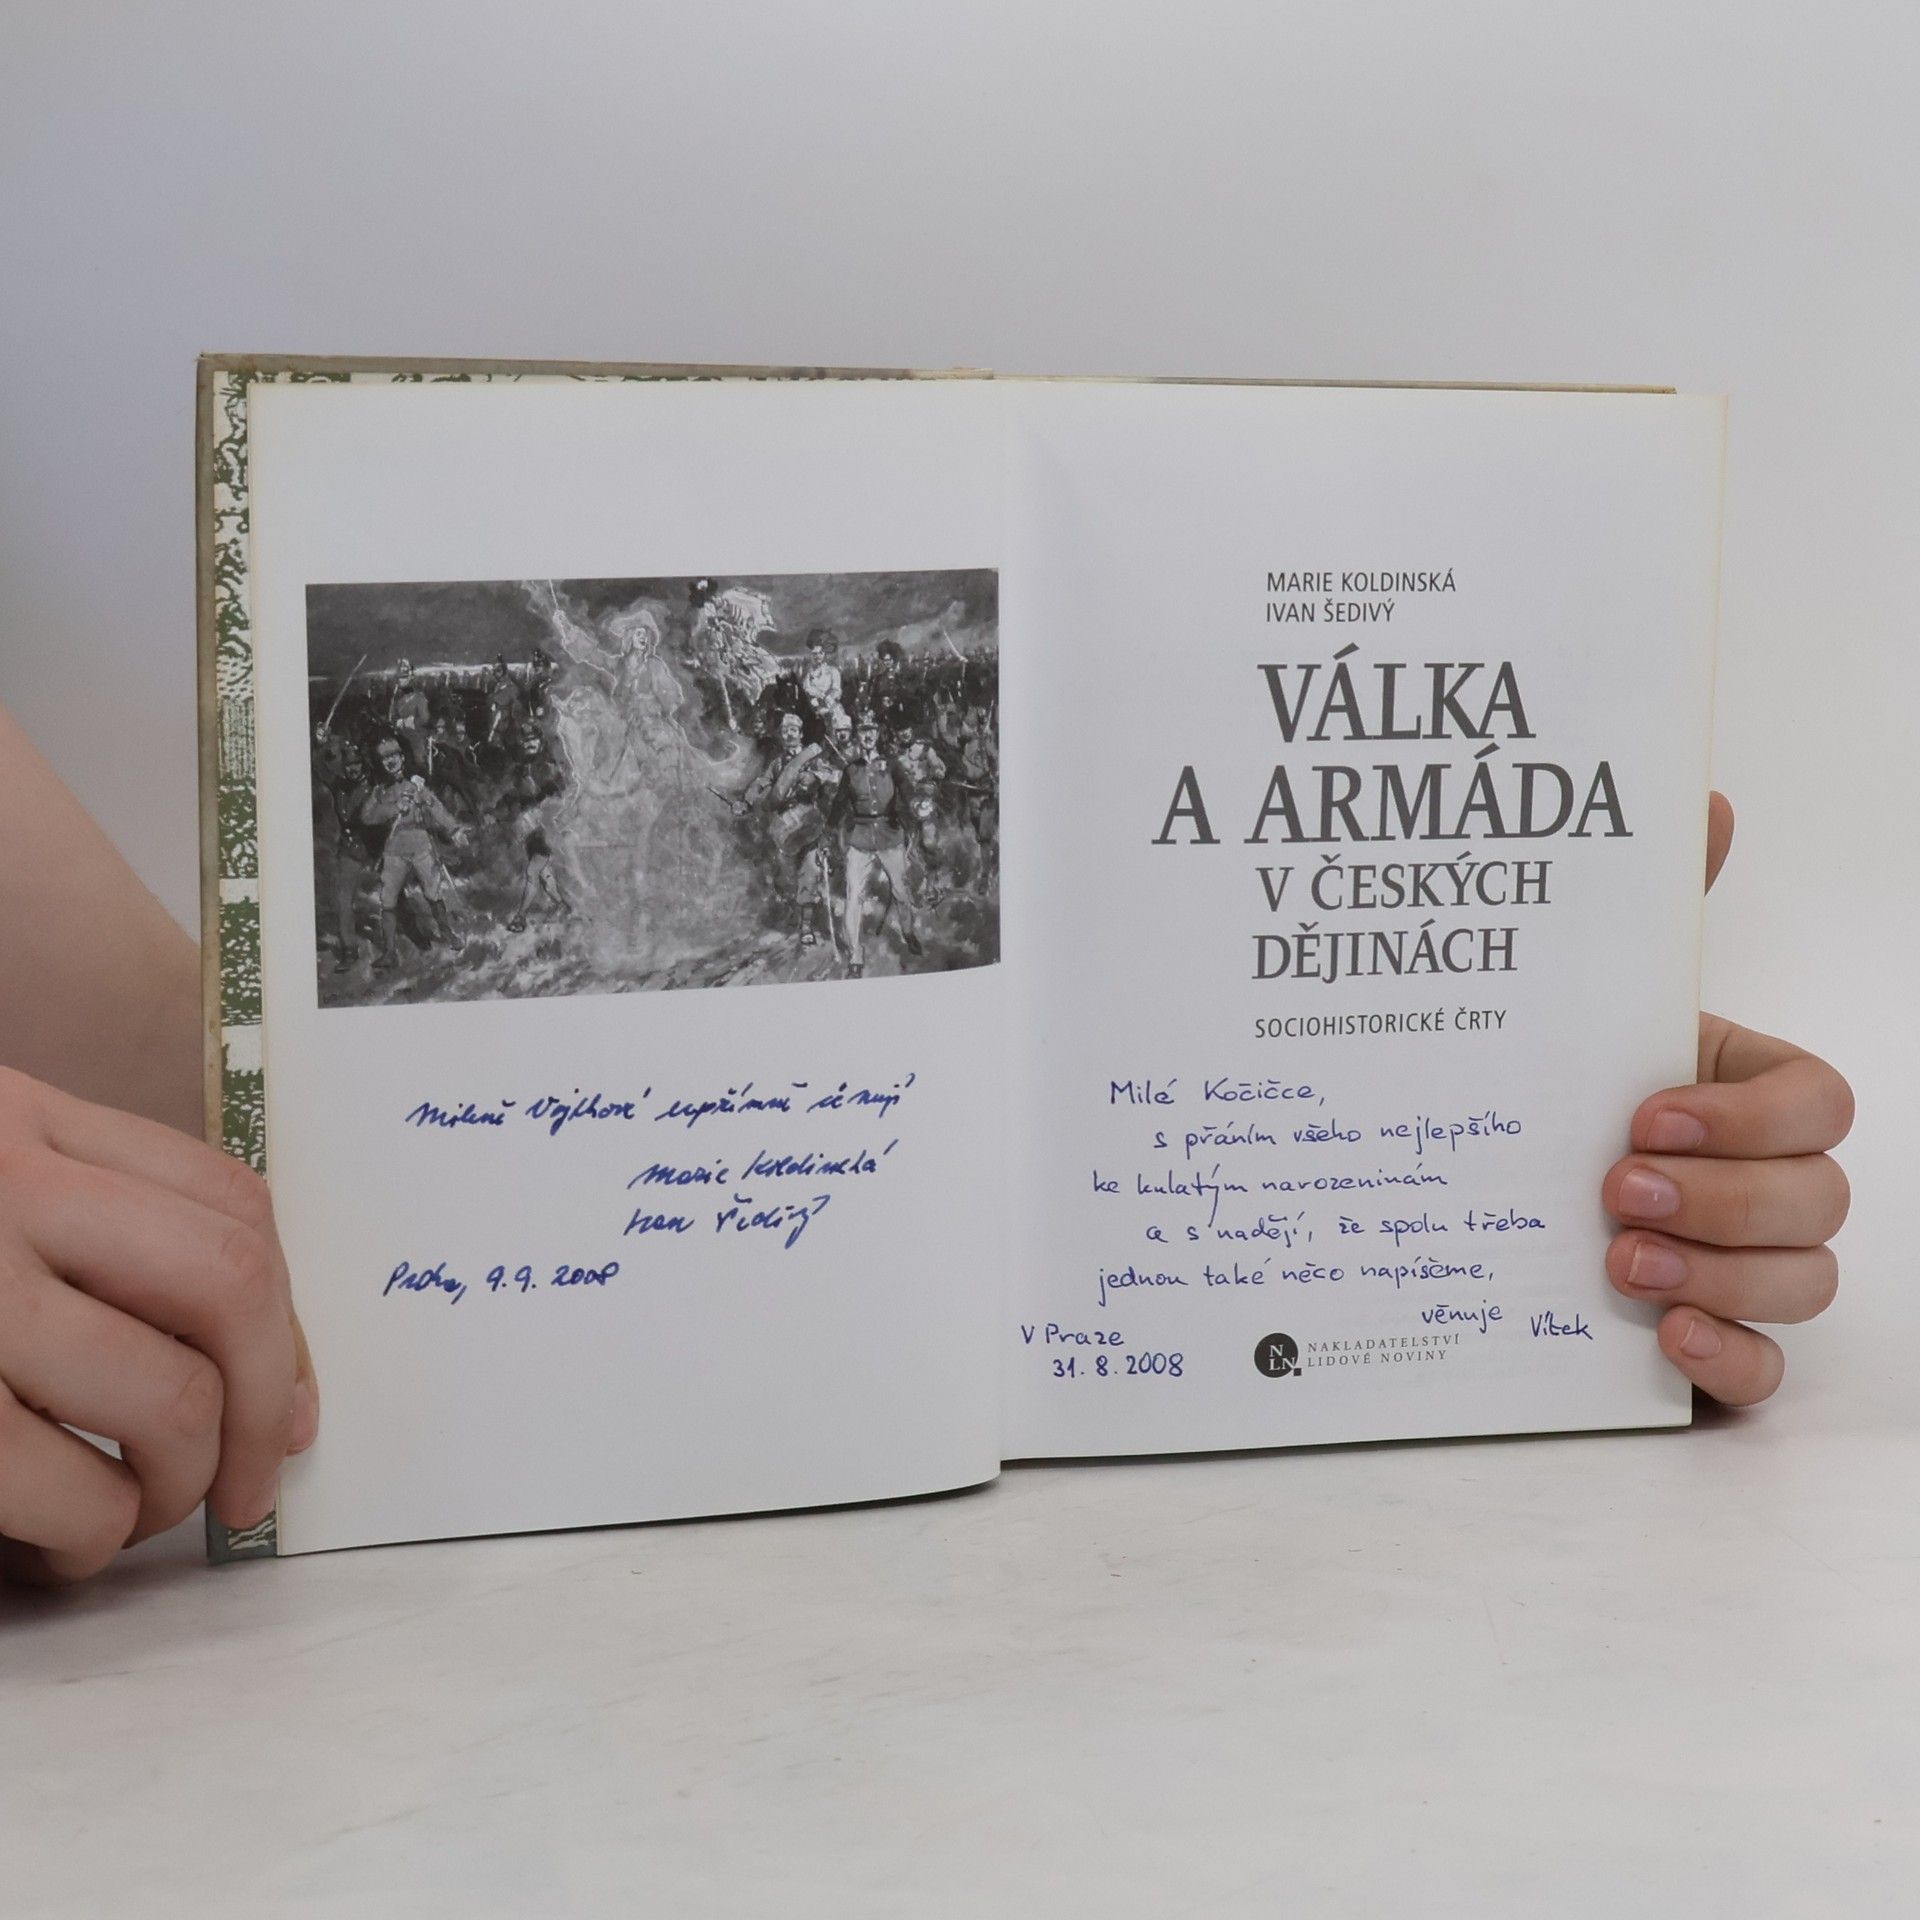 Mileně Vojtkové upřímně věnují
Marie Koldinská
Ivan Šedivý
Praha, 9.9. 2008
MARIE KOLDINSKÁ
IVAN ŠEDIVÝ
VÁLKA
A ARMÁDA
V ČESKÝCH
DĚJINÁCH
SOCIOHISTORICKÉ ČRTY
Milé Kočičce,
s přáním všeho nejlepšího
ke kulatým narozeninám
a s nadějí, že spolu třeba
jednou také něco napíšeme,
věnuje Vítek
V Praze
31. 8. 2008
N
LN
NAKLADATELSTVÍ
LIDOVÉ NOVINY